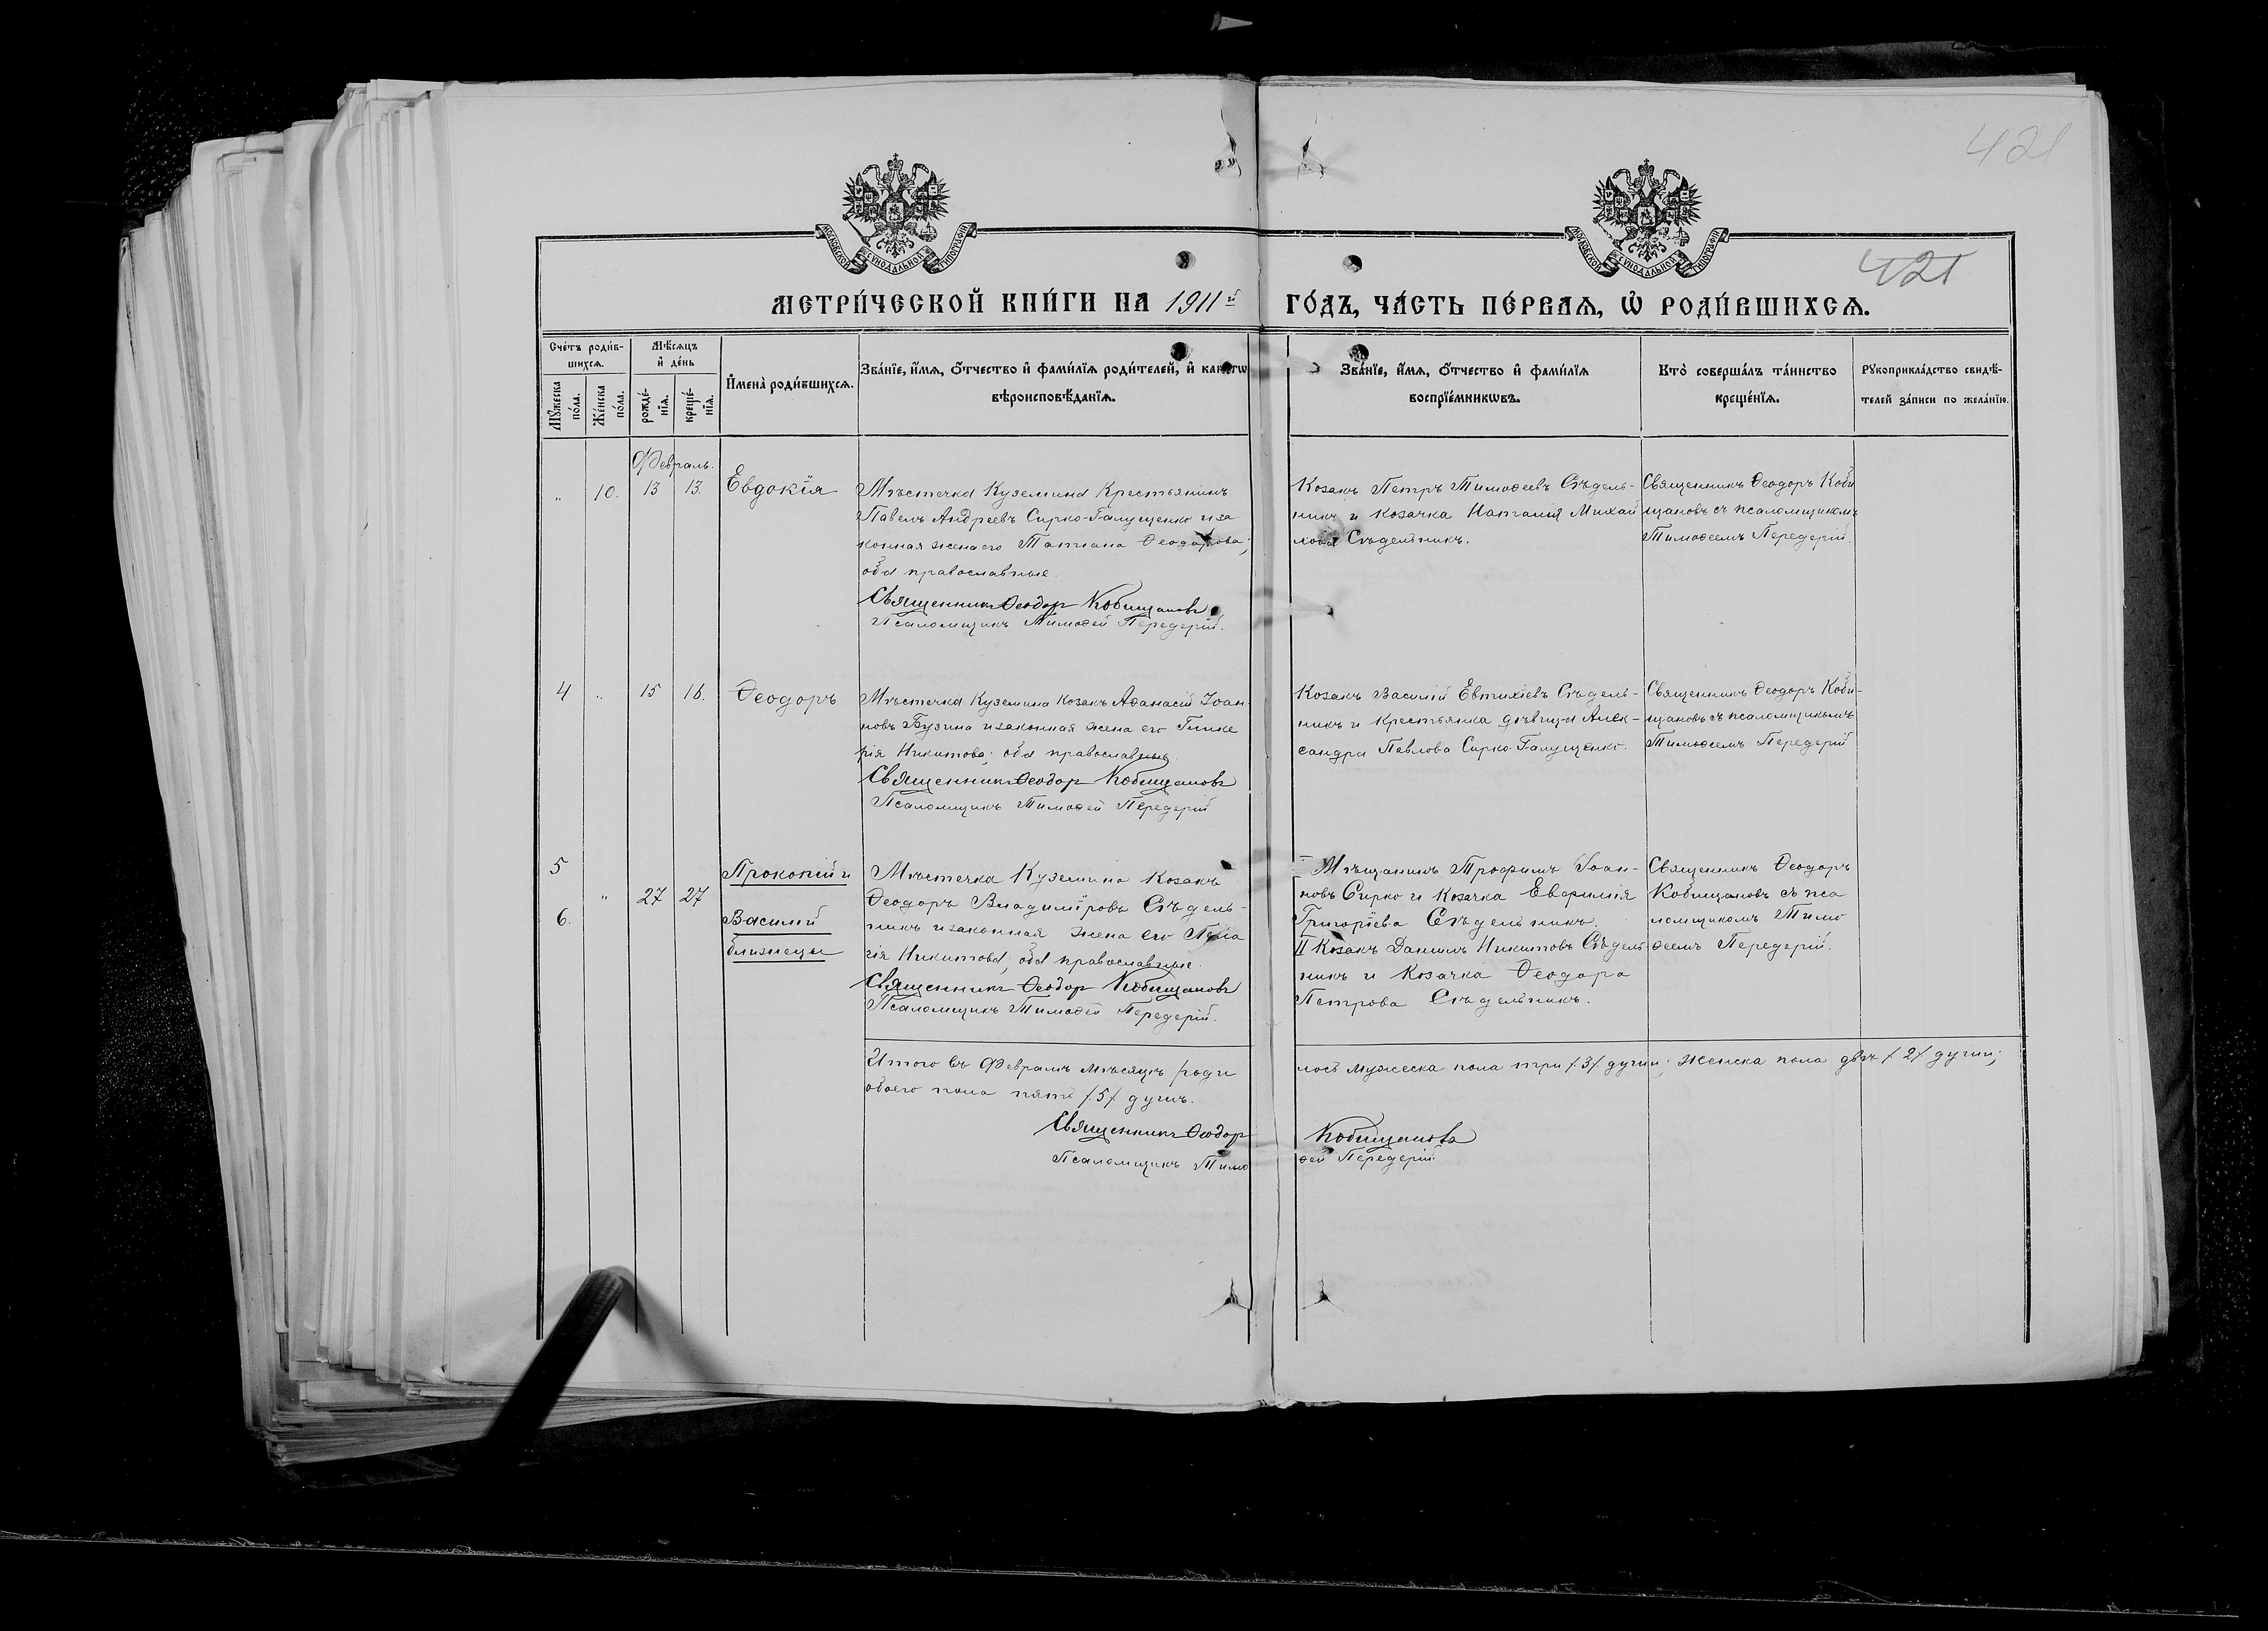 421
МОСКОВСКОЙ СУНОДАЛЬНОЙ ТИПОГРАФІИ
МОСКОВСКОЙ СУНОДАЛЬНОЙ ТИПОГРАФІИ
421
МЕТРИ́ЧЕСКОЙ КНИ́ГИ НА 1911й ГО́ДЪ, ЧА́СТЬ ПЕ́РВАѦ, Ѿ РОДИ́ВШИХСѦ.
Сче́тъ роди́в-
шихсѧ.
Мꙋ́жеска по́ла.
Же́нска по́ла.
Мѣ́сѧцъ
и҆ де́нь
рожде́-
нїѧ.
креще́-
нїѧ.
И҆мена̀ роди́вшихсѧ.
Зва́нїе, и҆́мѧ, ѻ҆́тчество и҆ фами́лїѧ роди́телей, и҆ како́гѡ
вѣроисповѣ́данїѧ.
Зва́нїе, и҆́мѧ, ѻ҆́тчество и҆ фами́лїѧ
воспрїе́мникѡвъ.
Кто̀ соверша́лъ та́инство
креще́нїѧ.
Рꙋкоприкла́дство свидѣ́-
телей за́писи по жела́нїю.
Февраль.
" 10. 13 13. Евдокія
Мѣстечка Куземина Крестьянинъ
Павелъ Андреевъ Сирко-Галущенко и за
конная жена его Татіана Ѳеодорова;
оба православные.
Священникъ Ѳеодоръ Кобищановъ
Псаломщикъ Тимоѳей Передерій.
Козакъ Петръ Тимоѳеевъ Сѣдель-
никъ и козачка Наталія Михай
лова Сѣдельникъ.
Священникъ Ѳеодоръ Коби
щановъ съ псаломщикомъ
Тимоѳеемъ Передерій.
4 " 15 16. Ѳеодоръ
Мѣстечка Куземина козакъ Аѳанасій Іоан
новъ Бузина и законная жена его Глике
рія Никитова; оба православные.
Священникъ Ѳеодоръ Кобищановъ
Псаломщикъ Тимоѳей Передерій
Козакъ Василій Евтихіевъ Сѣдель-
никъ и крестьянка дѣвица Алек-
сандра Павлова Сирко-Галущенко.
Священникъ Ѳеодоръ Коби-
щановъ съ псаломщикомъ
Тимоѳеемъ Передерій
5
6.
" 27 27
Прокопій и
Василій
близнецы
Мѣстечка Куземина козакъ
Ѳеодоръ Владиміровъ Сѣдель-
никъ и законная жена его Пела
гія Никитова; оба православные.
Священникъ Ѳеодоръ Кобищановъ
Псаломщикъ Тимоѳей Передерій.
I Мѣщанинъ Трофимъ Іоан-
новъ Сирко и Козачка Евфимія
Григоріева Сѣдельникъ.
II Козакъ Даніилъ Никитовъ Сѣдель-
никъ и Козачка Ѳеодора
Петрова Сѣдельникъ.
Священникъ Ѳеодоръ
Кобищановъ съ пса
ломщикомъ Тимо
ѳеемъ Передерій.
Итого въ Февралѣ мѣсяцѣ роди лось мужеска пола три /3/ души; женска пола двѣ /2/ души;
обоего пола пять /5/ душъ.
Священникъ Ѳеодоръ Кобищановъ
Псаломщикъ Тимо ѳей Передерій.